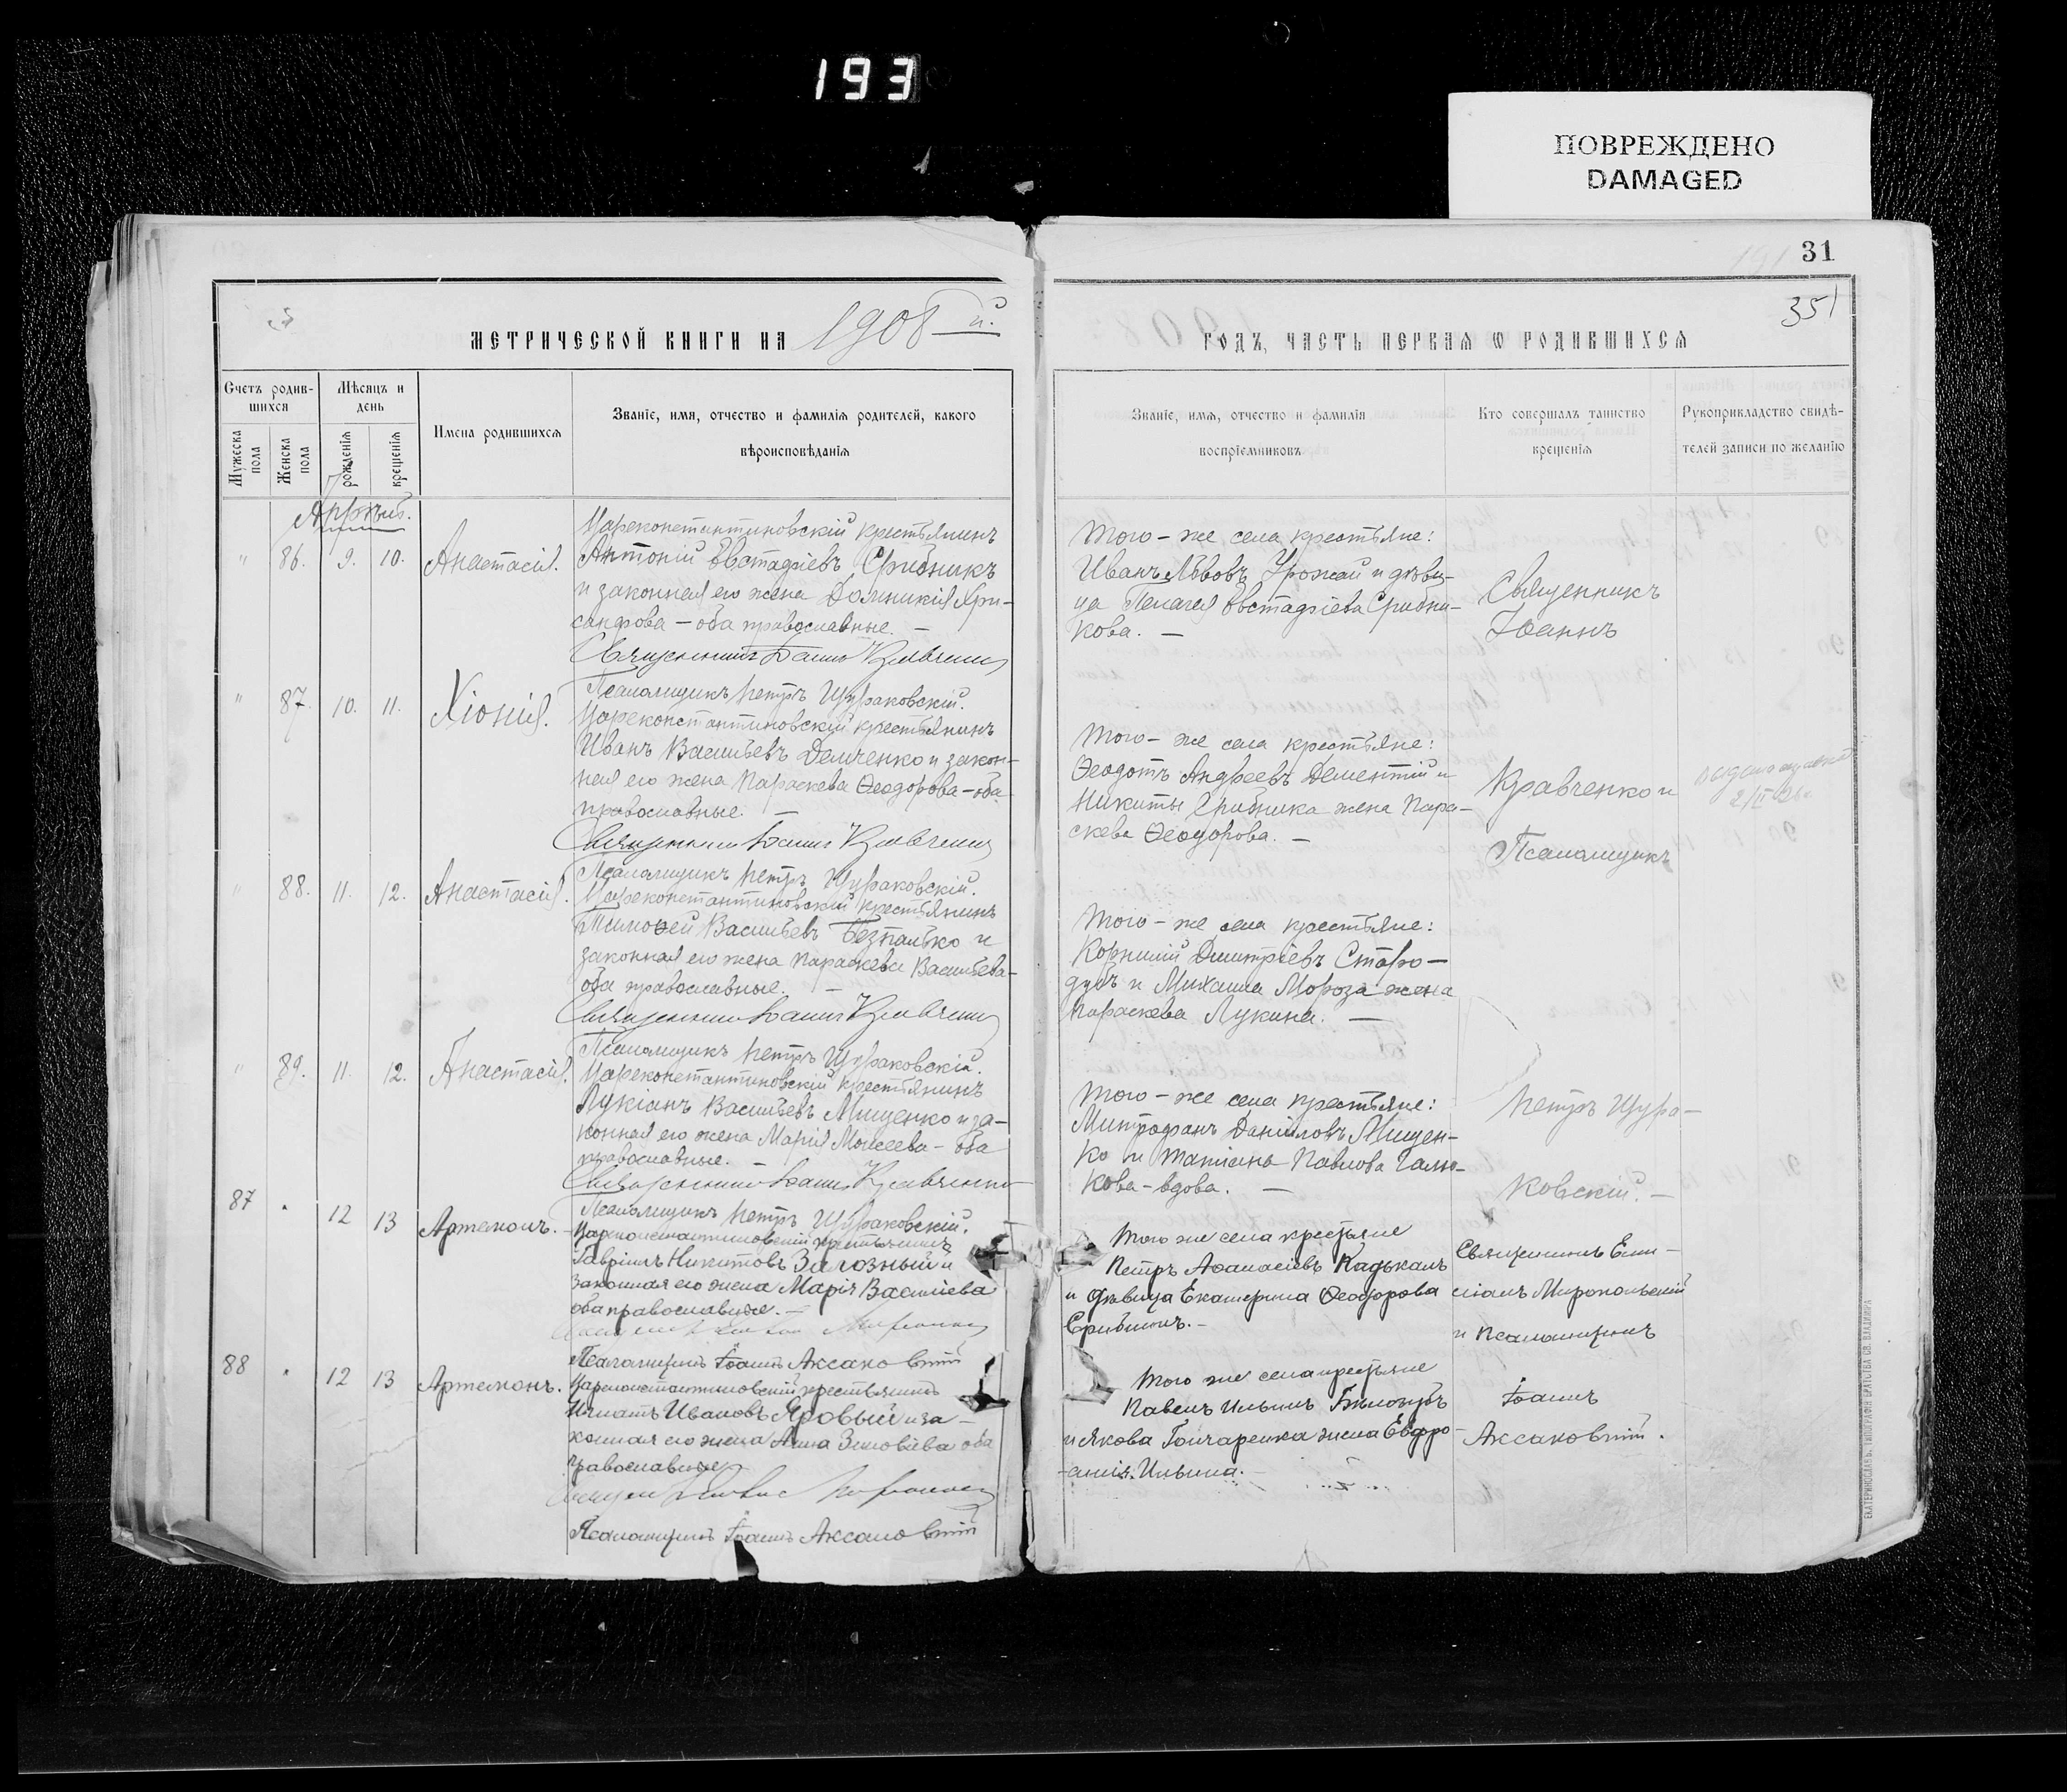 193
ПОВРЕЖДЕНО
DAMAGED
31
351
МЕТРИЧЕСКОЙ КНИГИ НА 1908 й.
ГОДЪ, ЧАСТЬ ПЕРВАЯ О РОДИВШИХСЯ
Счетъ родив-
шихся
Мѣсяцъ и
день
Мужеска
пола
Женска
пола
рожденія
крещенія
Имена родившихся
Званіе, имя, отчество и фамилія родителей, какого
вѣроисповѣданія
Званіе, имя, отчество и фамилія
воспріемниковъ
Кто совершалъ таинство
крещенія
Рукоприкладство свидѣ-
телей записи по желанію
Апрѣль.
" 86. 9. 10. Анастасія.
Цареконстантиновскій крестьянинъ
Антоній Евстафіевъ Срибникъ
и законная его жена Домникія Хри-
санфова – оба православные. –
Священникъ Іоаннъ Кравченко
Псаломщикъ Петръ Щураковскій.
Того-же села крестьяне:
Иванъ Львовъ Урожай и дѣви-
ца Пелагея Евстафіева Срибни-
кова. –
Священникъ
Іоаннъ
" 87. 10. 11. Хіонія.
Цареконстантиновскій крестьянинъ
Иванъ Васильевъ Демченко и закон-
ная его жена Параскева Ѳеодорова – оба
православные. –
Священникъ Іоаннъ Кравченко
Псаломщикъ Петръ Щураковскій.
Того-же села крестьяне:
Ѳеодотъ Андреевъ Дементій и
Никиты Срибника жена Пара-
скева Ѳеодорова. –
Кравченко и
Псаломщикъ
2/II
" 88. 11. 12. Анастасія.
Цареконстантиновскій крестьянинъ
Тимоѳей Васильевъ Безпалько и
законная его жена Параскева Васильева –
оба православные. –
Священникъ Іоаннъ Кравченко
Псаломщикъ Петръ Щураковскій.
Того-же села крестьяне:
Корнилій Димитріевъ Старо-
дубъ и Михаила Мороза жена
Параскева Лукина. –
" 89. 11. 12. Анастасія.
Цареконстантиновскій крестьянинъ
Лукіанъ Васильевъ Мищенко и за-
конная его жена Марія Моисеева – оба
православные. –
Священникъ Іоаннъ Кравченко
Псаломщикъ Петръ Щураковскій.
Того-же села крестьяне:
Митрофанъ Даніиловъ Мищен-
ко и Татіана Павлова
кова – вдова. –
Петръ Щура-
ковскій. –
87 " 12 13 Артемонъ.
Цареконстантиновскій крестьянинъ
Гавріилъ Никитовъ Залозный и
законная его жена Марія Василіева
оба православные. –
Псаломщикъ Іоаннъ Аксаковскій
Того же села крестьяне
Петръ Аѳанасіевъ Кадькалъ
и дѣвица Екатерина Ѳеодорова
Срибникъ. –
Священникъ Ели-
сіанъ Миропольскій
и Псаломщикъ
88 " 12 13 Артемонъ.
Цареконстантиновскій крестьянинъ
Игнатъ Ивановъ Яровый и за-
конная его жена Анна Зиновіева оба
православные
Псаломщикъ Іоаннъ Аксаковскій
Того же села крестьяне
Павелъ Ильинъ Бѣлокубъ
и Якова Гончаренка жена Евфро-
синія Ильина. –
Іоаннъ
Аксаковскій.
ЕКАТЕРИНОСЛАВЪ. ТИПОГРАФІЯ БРАТСТВА СВ. ВЛАДИМІРА